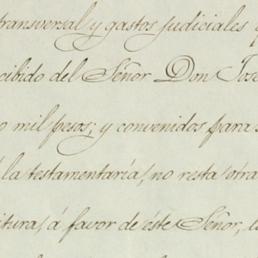 transversal y gastos judiciales
cibido del Señor Don José
o mil pesos; y convenidos para
la testamentaría, no resta otra
itura, á favor de éste Señor,